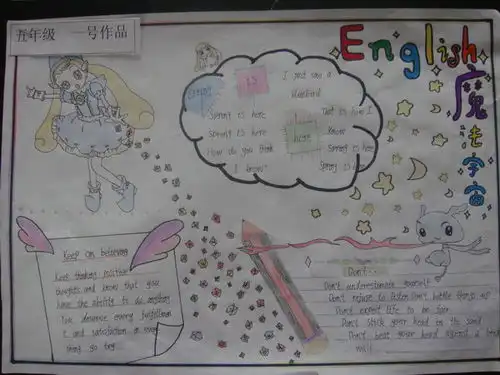 五年级 一号作品
English
魔法宇宙
Spring is
I just saw a
bluebird
Spring is here
That is how I
Spring is here
here
know
How do you think
Spring is here
I know?
Spring is here
Keep on believing
Keep thinking positive
thoughts and know that you
have the ability to do anything
You deserve every fulfillmen
t and satisfaction so
thing go try
Don't
Don't underestimate yourself
Don't refuse to
Don't expect life to be fair
Don't stick your head in the sand
Don't beat your head against a brick
wall